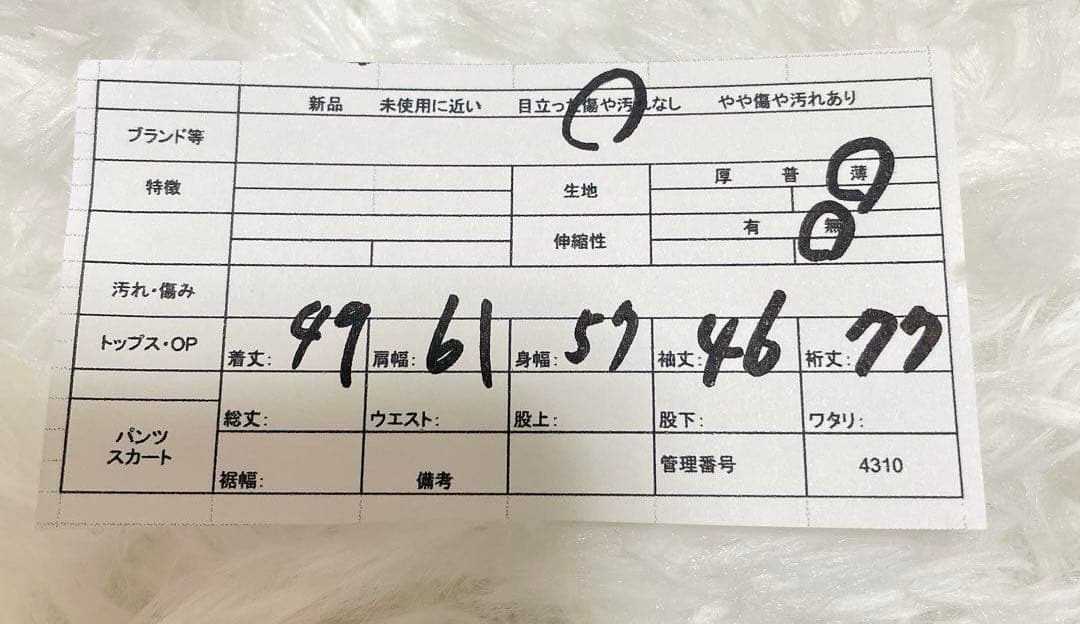 新品 未使用に近い 目立った傷や汚れなし やや傷や汚れあり
ブランド等
特徴 生地 厚 普 薄
伸縮性 有 無
汚れ・傷み
トップス・OP 着丈: 49 肩幅: 61 身幅: 57 袖丈: 46 裄丈: 77
総丈: ウエスト: 股上: 股下: ワタリ:
パンツ
スカート
裾幅: 備考 管理番号 4310